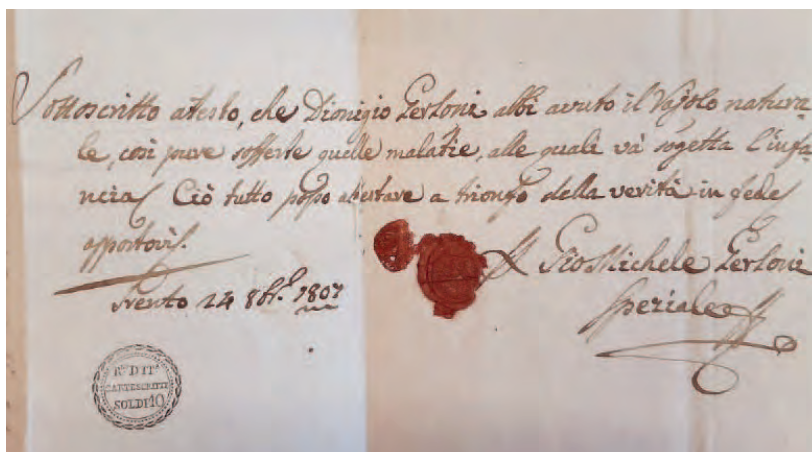 Sottoscritto atesto, che Dionigio Gerloni abbi avuto il Vajolo natura=
le, così pure sofferte quelle malatie, alle quali và sogetta l'infa
ncia Ciò tutto posso atestare a trionfo della verità in fede
Gio Michele Gerloni
Speziale
Trento 24 8br. 1807
R.º D'IT.ª
SOLDI 10